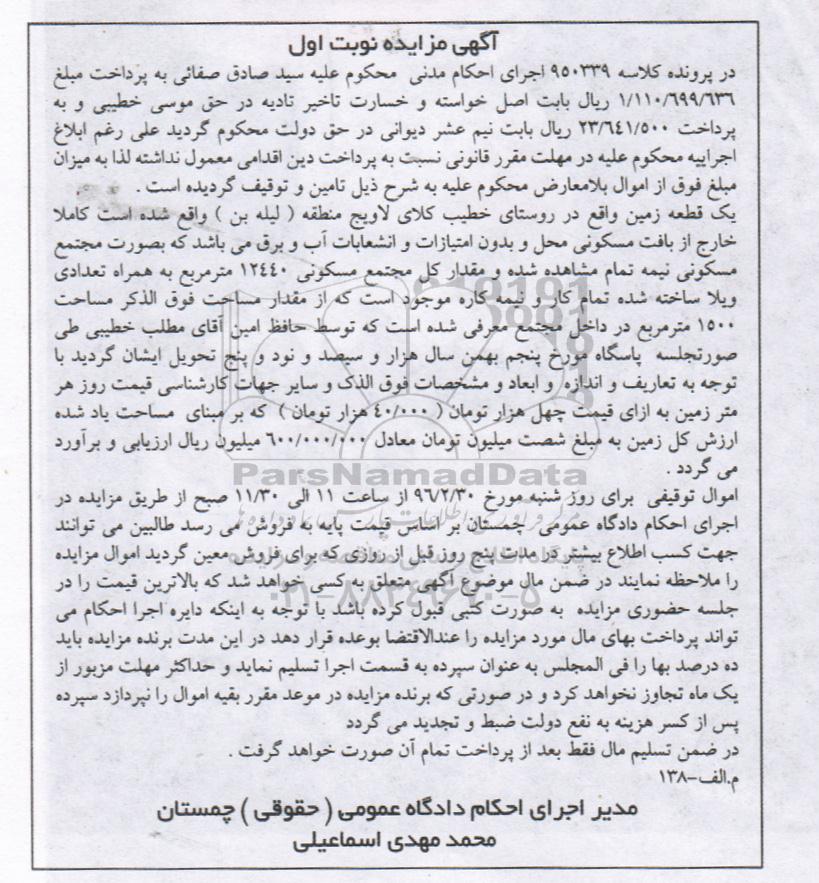 آگهی مزایده نوبت اول
در پرونده کلاسه ۹۵۰۳۳۹ اجرای احکام مدنی محکوم علیه سید صادق صفائی به پرداخت مبلغ
۱/۱۱۰/۶۹۹/۶۳۶ ریال بابت اصل خواسته و خسارت تاخیر تادیه در حق موسی خطیبی و به
پرداخت ۲۳/۶۴۱/۵۰۰ ریال بابت نیم عشر دیوانی در حق دولت محکوم گردید علی رغم ابلاغ
اجراییه محکوم علیه در مهلت مقرر قانونی نسبت به پرداخت دین اقدامی معمول نداشته لذا به میزان
مبلغ فوق از اموال بلامعارض محکوم علیه به شرح ذیل تامین و توقیف گردیده است .
یک قطعه زمین واقع در روستای خطیب کلای لاویج منطقه ( لیله بن ) واقع شده است کاملا
خارج از بافت مسکونی محل و بدون امتیازات و انشعابات آب و برق می باشد که بصورت مجتمع
مسکونی نیمه تمام مشاهده شده و مقدار کل مجتمع مسکونی ۱۲۴۴۰ مترمربع به همراه تعدادی
ویلا ساخته شده تمام کار و نیمه کاره موجود است که از مقدار مساحت فوق الذکر مساحت
۱۵۰۰ مترمربع در داخل مجتمع معرفی شده است که توسط حافظ امین آقای مطلب خطیبی طی
صورتجلسه پاسگاه مورخ پنجم بهمن سال هزار و سیصد و نود و پنج تحویل ایشان گردید با
توجه به تعاریف و اندازه و ابعاد و مشخصات فوق الذک و سایر جهات کارشناسی قیمت روز هر
متر زمین به ازای قیمت چهل هزار تومان ( ۴۰/۰۰۰ هزار تومان ) که بر مبنای مساحت یاد شده
ارزش کل زمین به مبلغ شصت میلیون تومان معادل ۶۰۰/۰۰۰/۰۰۰ میلیون ریال ارزیابی و برآورد
می گردد .
اموال توقیفی برای روز شنبه مورخ ۹۶/۲/۳۰ از ساعت ۱۱ الی ۱۱/۳۰ صبح از طریق مزایده در
اجرای احکام دادگاه عمومی چمستان بر اساس قیمت پایه به فروش می رسد طالبین می توانند
جهت کسب اطلاع بیشتر در مدت پنج روز قبل از روزی که برای فروش معین گردید اموال مزایده
را ملاحظه نمایند در ضمن مال موضوع آگهی متعلق به کسی خواهد شد که بالاترین قیمت را در
جلسه حضوری مزایده به صورت کتبی قبول کرده باشد با توجه به اینکه دایره اجرا احکام می
تواند پرداخت بهای مال مورد مزایده را عندالاقتضا بوعده قرار دهد در این مدت برنده مزایده باید
ده درصد بها را فی المجلس به عنوان سپرده به قسمت اجرا تسلیم نماید و حداکثر مهلت مزبور از
یک ماه تجاوز نخواهد کرد و در صورتی که برنده مزایده در موعد مقرر بقیه اموال را نپردازد سپرده
پس از کسر هزینه به نفع دولت ضبط و تجدید می گردد
در ضمن تسلیم مال فقط بعد از پرداخت تمام آن صورت خواهد گرفت .
م.الف-۱۳۸
مدیر اجرای احکام دادگاه عمومی ( حقوقی ) چمستان
محمد مهدی اسماعیلی
ParsNamadData
۰۲۱-۸۸۳۴۹۶۷۰-۵